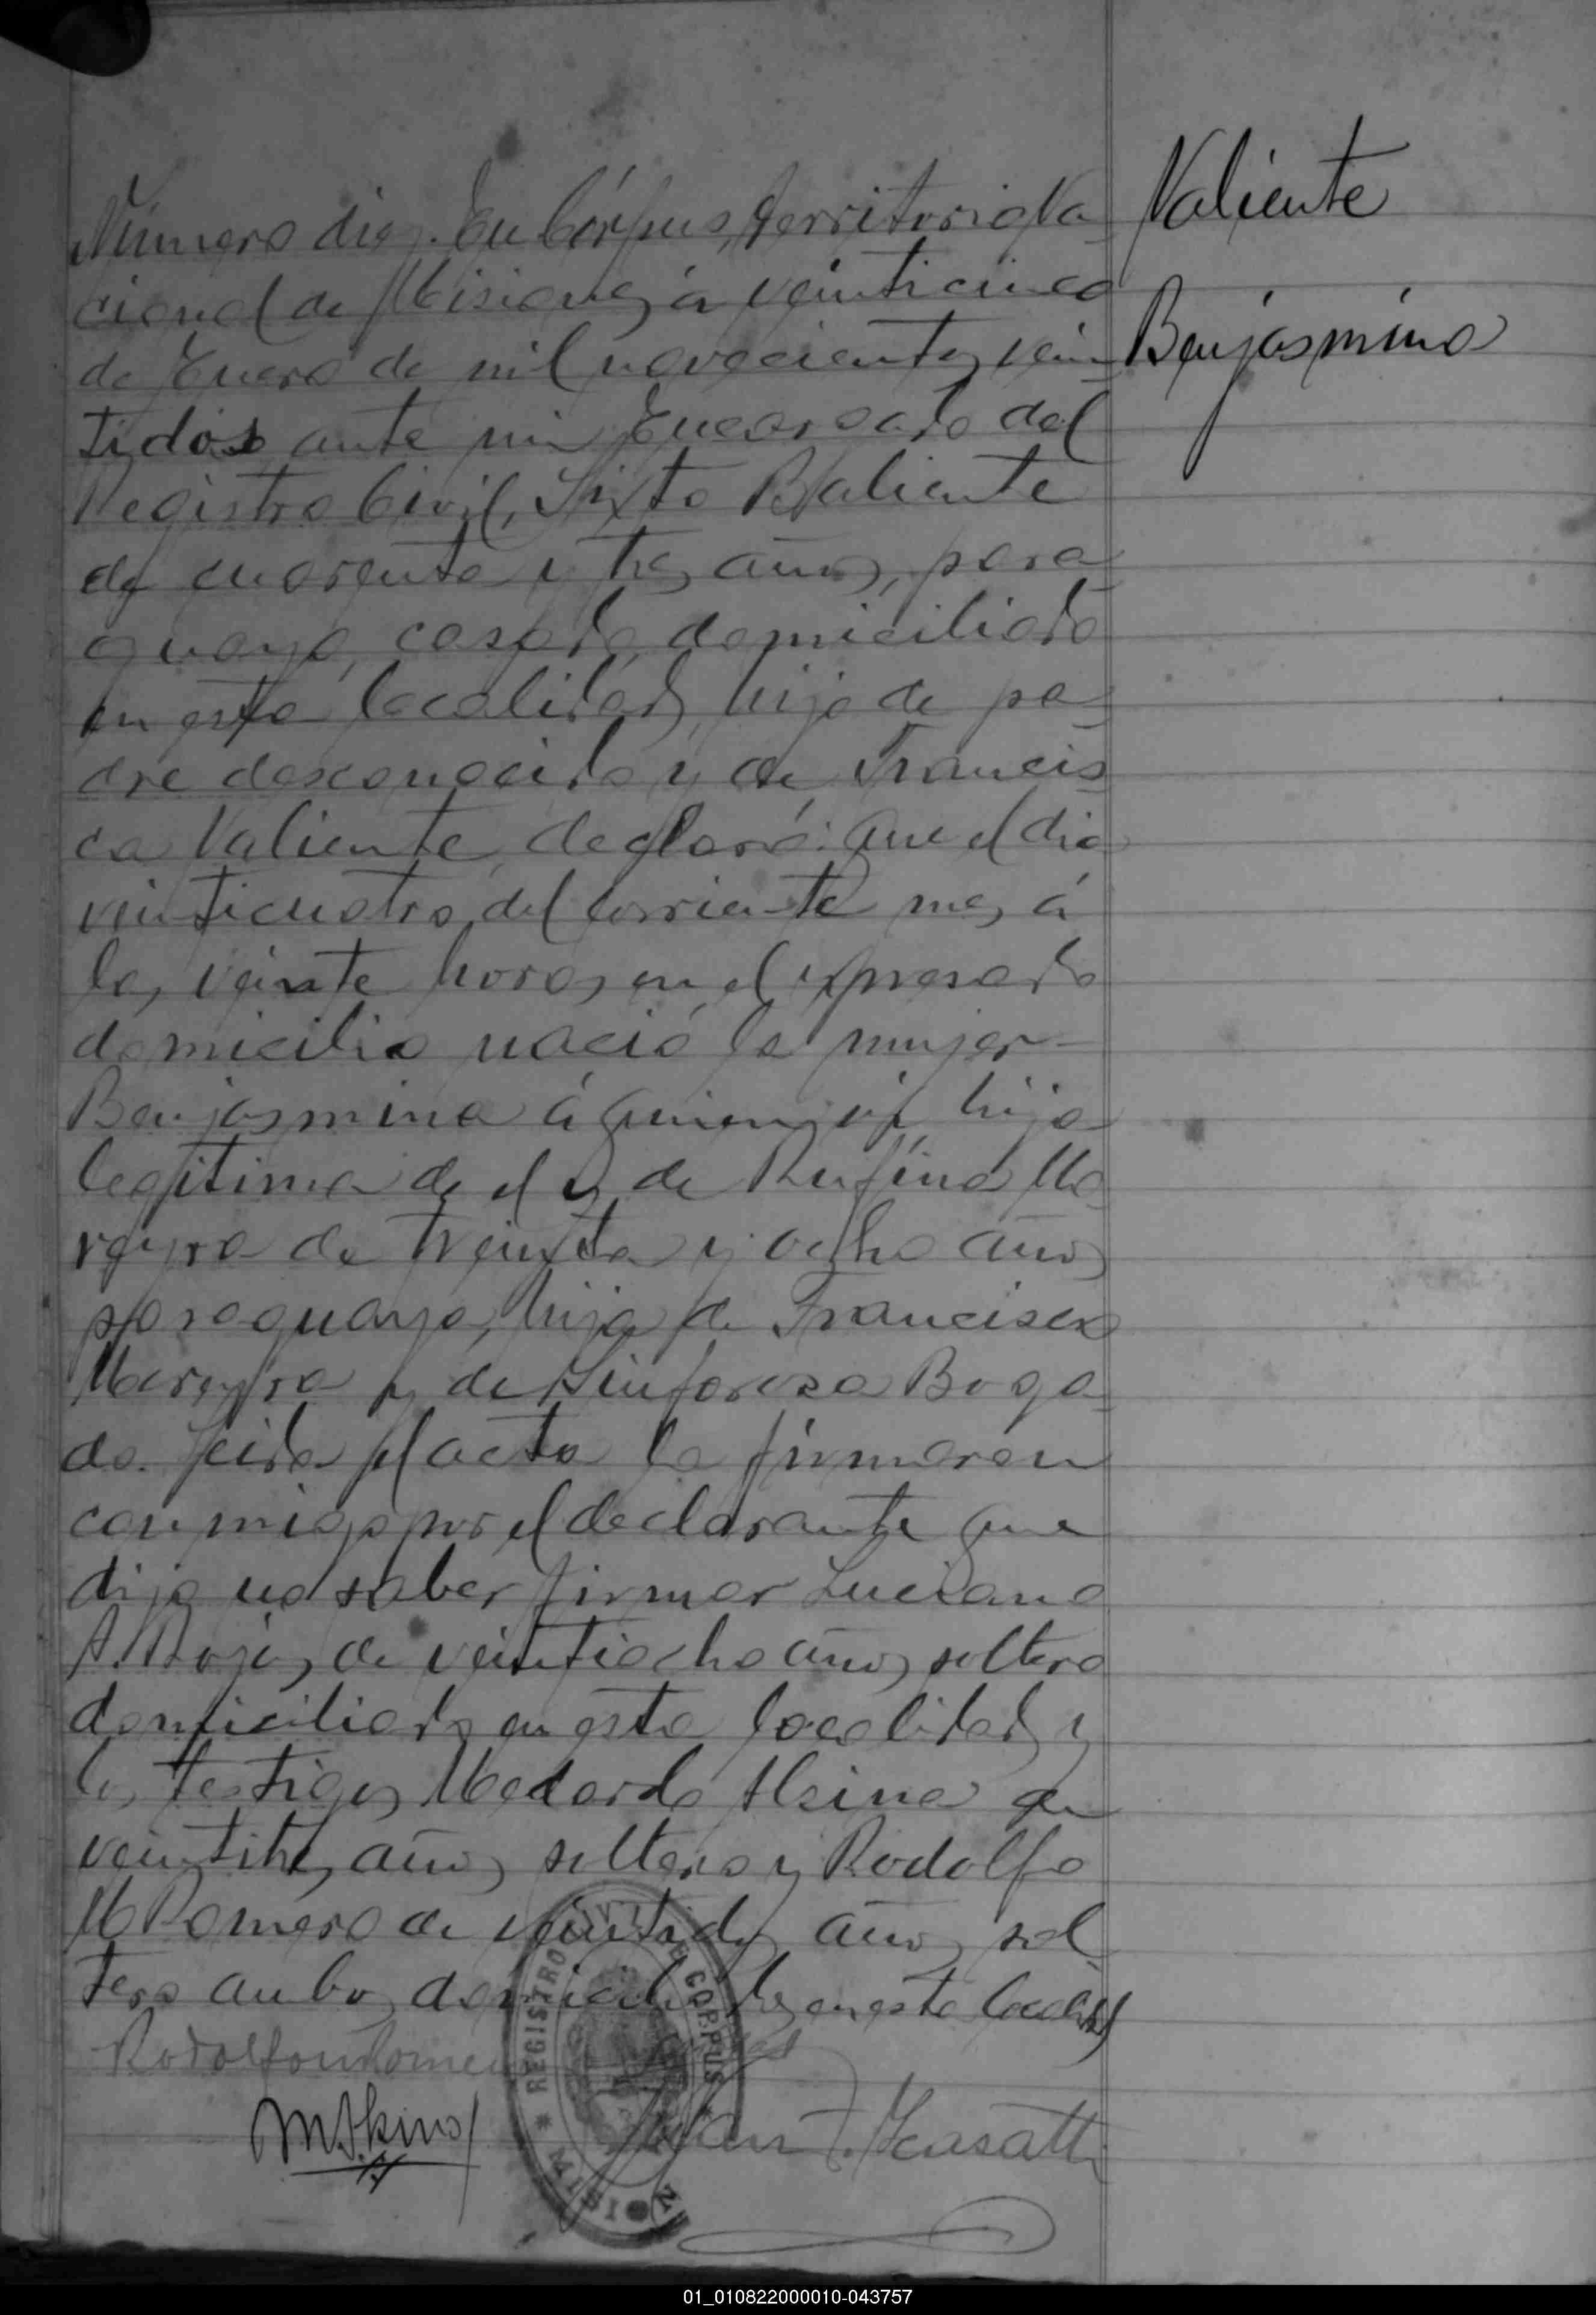 Número diez. En Córpus, Territorio Na-
cional de Misiones, á veinticinco
de Enero de mil novecientos vein-
tidos, ante mi Encargado del
Registro Civil, Sixto Baliente
de cuarenta y tres años, para-
guayo, casado, domiciliado
en esta localidad, hijo de pa-
dre desconocido y de Francis-
ca Valiente, declaró: Que el dia
veinticuatro del corriente mes á
las veinte horas en el expresado
domicilio nació la mujer
Benjasmina á quien ví, hija
legítima de el y de Rufina Ma-
reyra de treinta y ocho años
paraguaya, hija de Francisco
Mareyra y de Sinforosa Boga-
do. Leida el acta la firmaron
conmigo por el declarante que
dijo no saber firmar Luciano
A. Rojas, de veintiocho años, soltero
domiciliado en esta localidad y
los testigos Medardo Alsina de
veintitres años, soltero y Rodolfo
M Romero de veintidos años, sol-
tero ambos domiciliados en esta localidad
Rodolfo M Romero
M. Alsina
Juan F. Casatti
REGISTRO CIVIL DE CORPUS
MISIONES
Valiente
Benjasmina
01_010822000010-043757